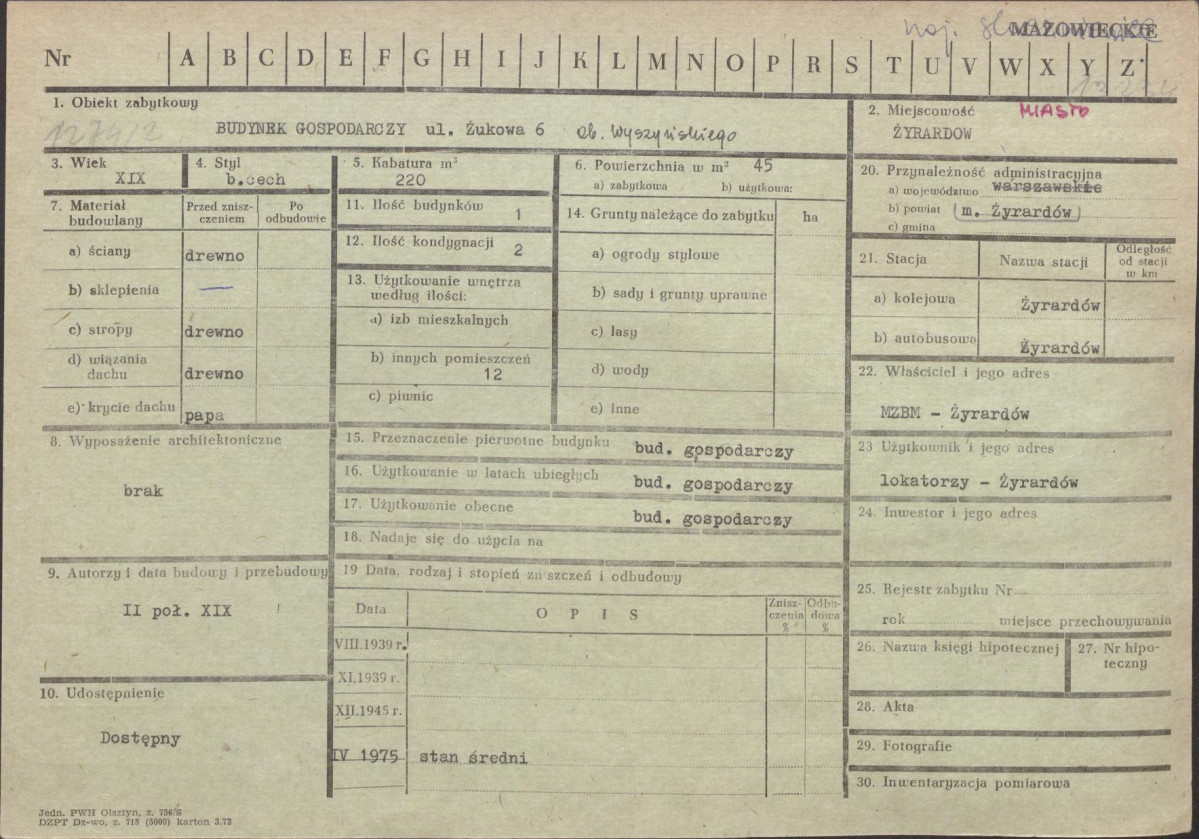 woj.
MAZOWIECKIE
Nr A B C D E F G H I J K L M N O P R S T U V W X Y Z
1. Obiekt zabytkowy
1274/2
BUDYNEK GOSPODARCZY ul. Żukowa 6 ob. Wyszyńskiego
2. Miejscowość MIASTO
ŻYRARDOW
3. Wiek
XIX
4. Styl
b.cech
5. Kabatura m³
220
6. Powierzchnia w m² 45
a) zabytkowa b) użytkowa:
20. Przynależność administracyjna
a) województwo warszawskie
b) powiat (m. Żyrardów)
c) gmina
7. Materiał budowlany
Przed znisz-
czeniem
Po
odbudowie
a) ściany drewno
b) sklepienia —
c) stropy drewno
d) wiązania
dachu drewno
e) krycie dachu papa
11. Ilość budynków 1
12. Ilość kondygnacji 2
13. Użytkowanie wnętrza
według ilości:
a) izb mieszkalnych
b) innych pomieszczeń
12
c) piwnic
14. Grunty należące do zabytku ha
a) ogrody stylowe
b) sady i grunty uprawne
c) lasy
d) wody
e) inne
21. Stacja Nazwa stacji
Odległość
od stacji
w km
a) kolejowa Żyrardów
b) autobusowa Żyrardów
22. Właściciel i jego adres
MZBM - Żyrardów
23 Użytkownik i jego adres
lokatorzy - Żyrardów
24. Inwestor i jego adres
8. Wyposażenie architektoniczne
brak
15. Przeznaczenie pierwotne budynku bud. gospodarczy
16. Użytkowanie w latach ubiegłych bud. gospodarczy
17. Użytkowanie obecne bud. gospodarczy
18. Nadaje się do użycia na
9. Autorzy i data budowy i przebudowy
II poł. XIX
19 Data, rodzaj i stopień zniszczeń i odbudowy
Data OPIS
Znisz-
czenia
%
Odbu-
dowa
%
VIII.1939 r.
XI.1939 r.
XII.1945 r.
IV 1975 stan średni
10. Udostępnienie
Dostępny
25. Rejestr zabytku Nr
rok miejsce przechowywania
26. Nazwa księgi hipotecznej
27. Nr hipo-
teczny
28. Akta
29. Fotografie
30. Inwentaryzacja pomiarowa
Jedn. PWH Olsztyn, z. 756/S
DZPT Dz-wo, z. 718 (5000) karton 3.73